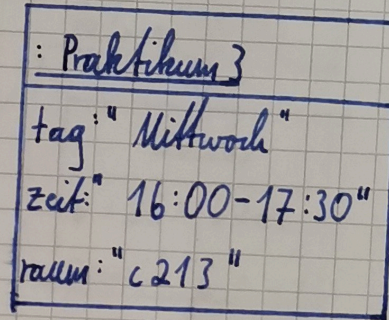 : Praktikum 3
tag:" Mittwoch"
zeit:" 16:00-17:30"
raum:"c213"